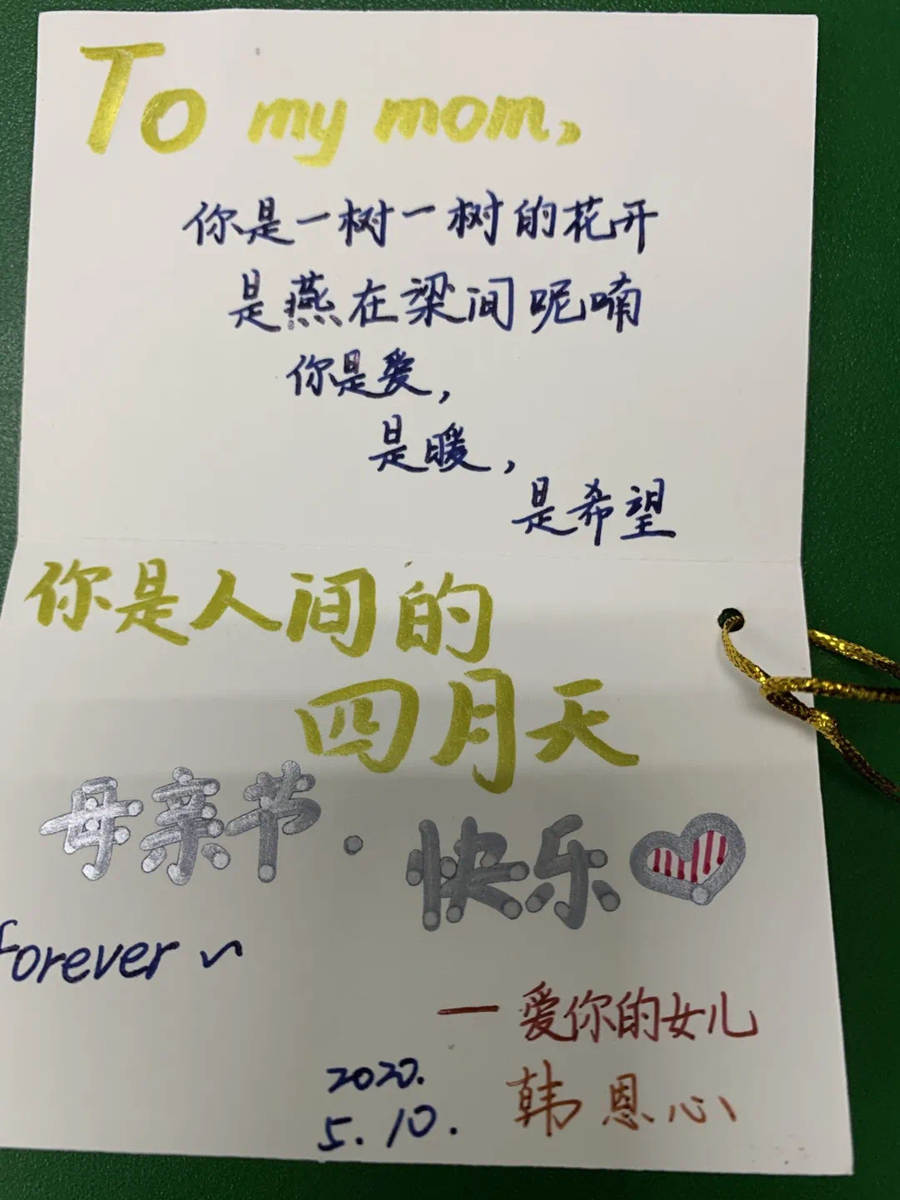 To my mom,
你是一树一树的花开
是燕在梁间呢喃
你是爱,
是暖,
是希望
你是人间的
四月天
母亲节·
快乐
forever ~
— 爱你的女儿
2020.
韩恩心
5.10.